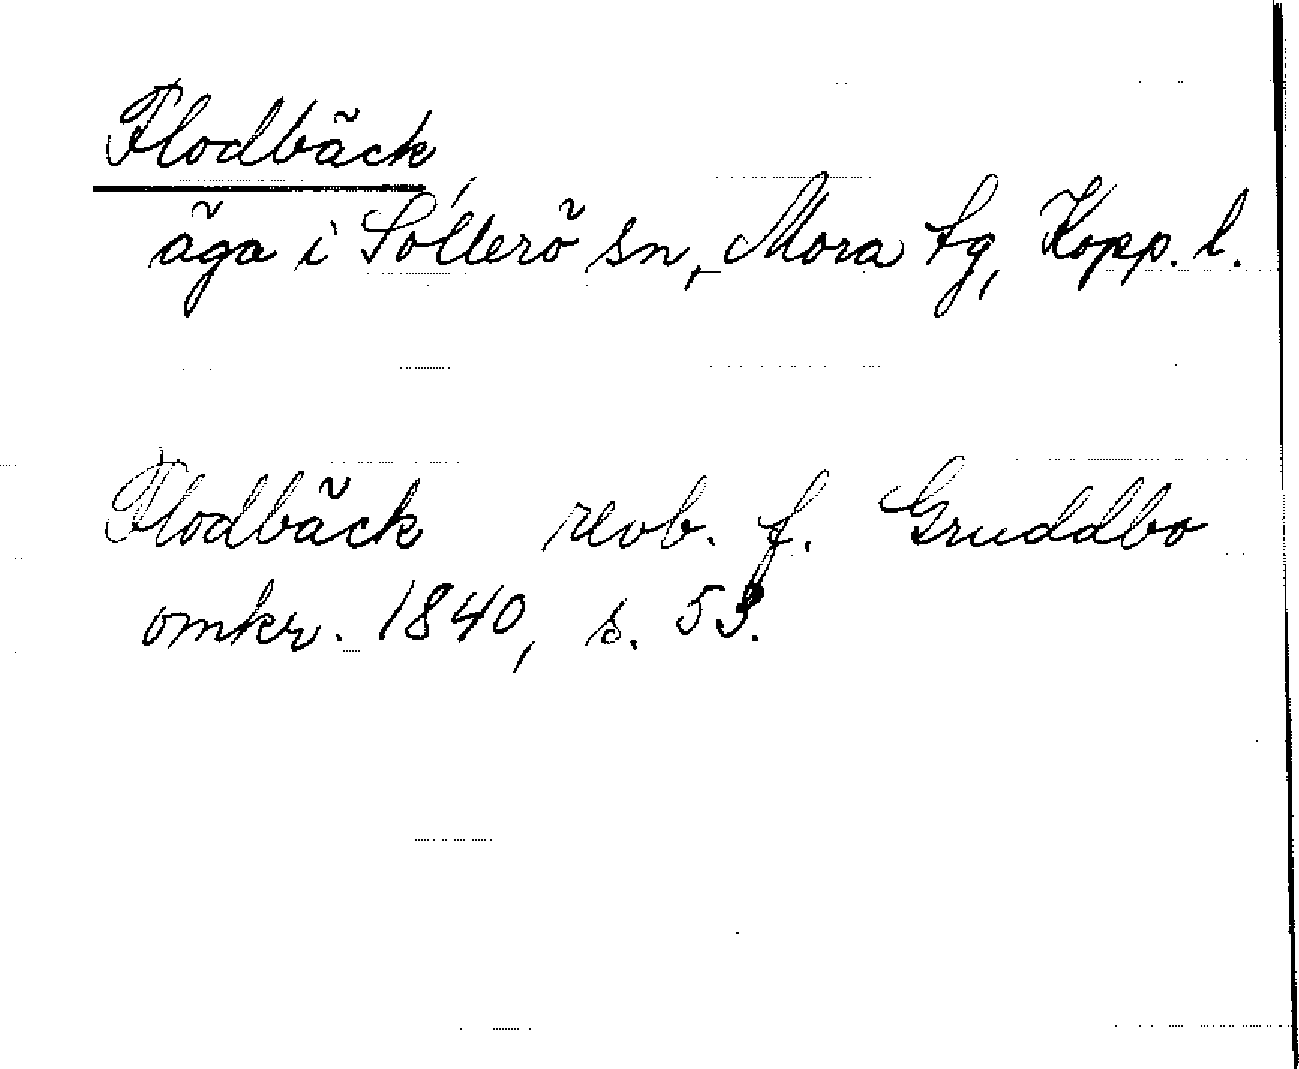 Flodbäck
äga i Sollerö sn, Mora tg, Kopp. l.
Flodbäck revb. f. Gruddbo
omkr. 1840, s. 53.